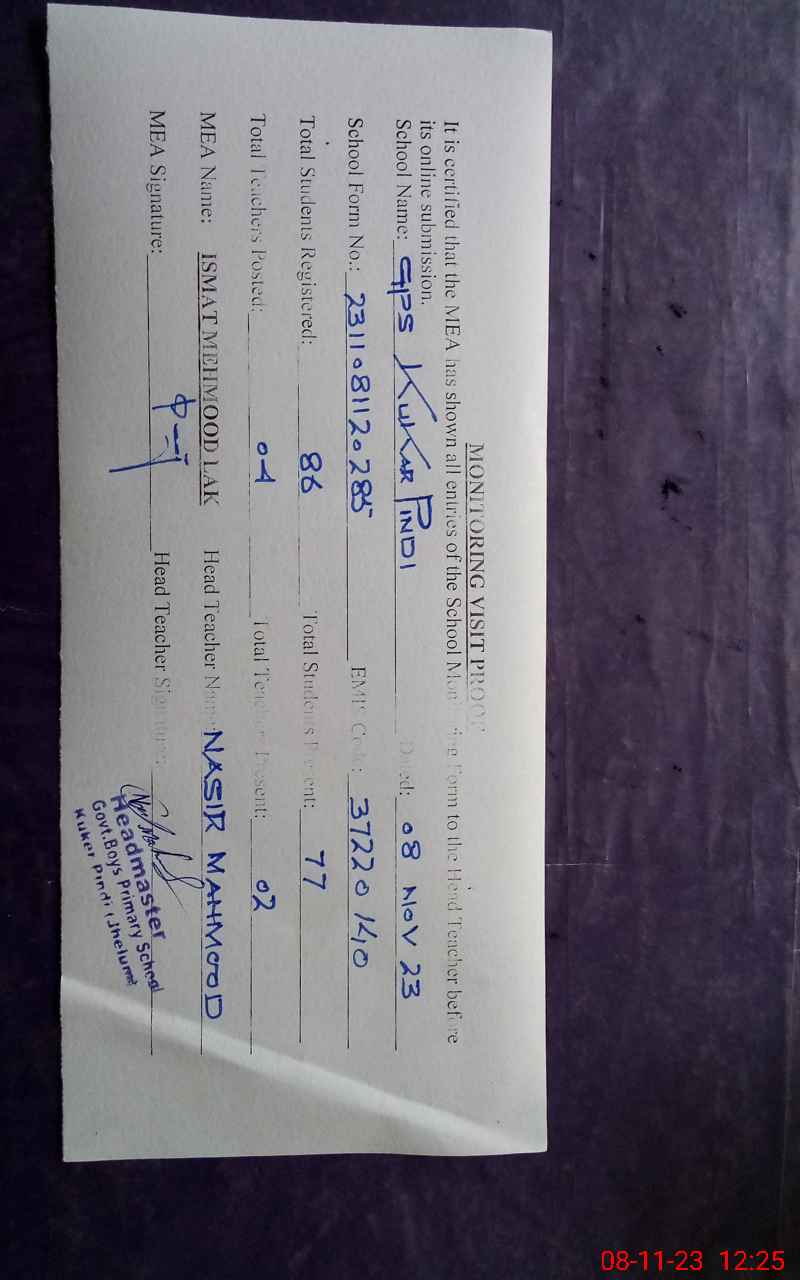 MONITORING VISIT PROOF
It is certified that the MEA has shown all entries of the School Monitoring Form to the Head Teacher before
its online submission.
School Name: GPS KUKAR PINDI Dated: 08 NOV 23
School Form No.: 2311081120285 EMIS Code: 37220140
Total Students Registered: 86 Total Students Present: 77
Total Teachers Posted: 04 Total Teachers Present: 02
MEA Name: ISMAT MEHMOOD LAK Head Teacher Name: NASIR MAHMOOD
MEA Signature: Head Teacher Signature:
Headmaster
Govt.Boys Primary School
Kuker Pindi (Jhelum)
08-11-23 12:25